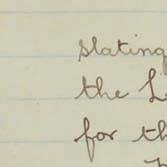 stating
the Li
for th